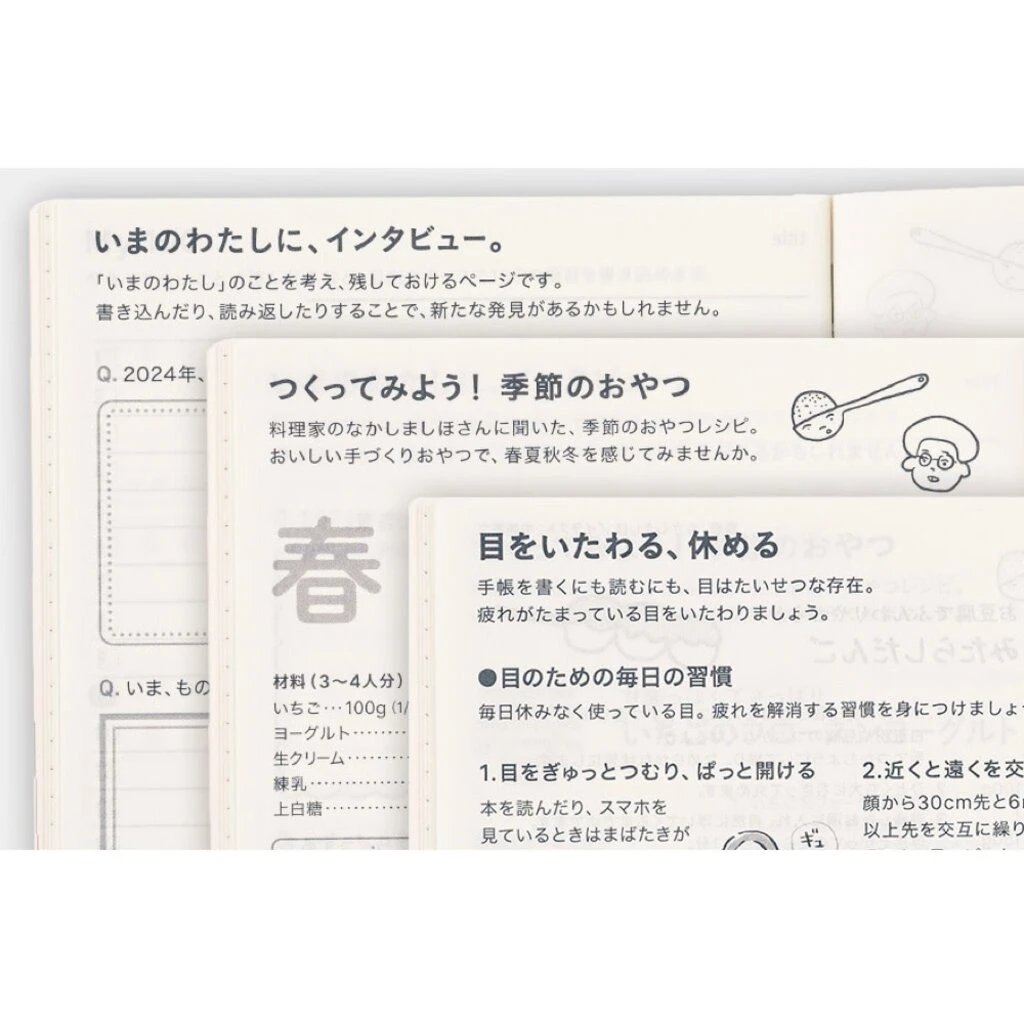 いまのわたしに、インタビュー。
「いまのわたし」のことを考え、残しておけるページです。
書き込んだり、読み返したりすることで、新たな発見があるかもしれません。
Q. 2024年、
Q. いま、もの
つくってみよう！ 季節のおやつ
料理家のなかしましほさんに聞いた、季節のおやつレシピ。
おいしい手づくりおやつで、春夏秋冬を感じてみませんか。
春
材料（3〜4人分）
いちご…100g (1/
ヨーグルト
生クリーム
練乳
上白糖
目をいたわる、休める
手帳を書くにも読むにも、目はたいせつな存在。
疲れがたまっている目をいたわりましょう。
●目のための毎日の習慣
毎日休みなく使っている目。疲れを解消する習慣を身につけましょ
1.目をぎゅっとつむり、ぱっと開ける
本を読んだり、スマホを
見ているときはまばたきが
ギュ
2.近くと遠くを交
顔から30cm先と6
以上先を交互に繰り